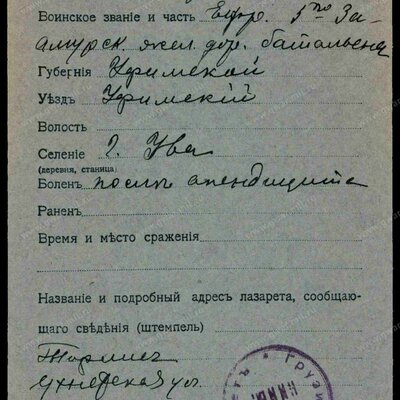 Воинское званіе и часть Ефр. 5го За-
амурск. жел. дор. батальона
Губернія Уфимской
Уѣздъ Уфимскій
Волость
Селеніе г. Уфа
(деревня, станица)
Боленъ послѣ апендицита
Раненъ
Время и мѣсто сраженія
Названіе и подробный адресъ лазарета, сообщаю-
щаго свѣдѣнія (штемпель)
ул.
ГРУЗИ